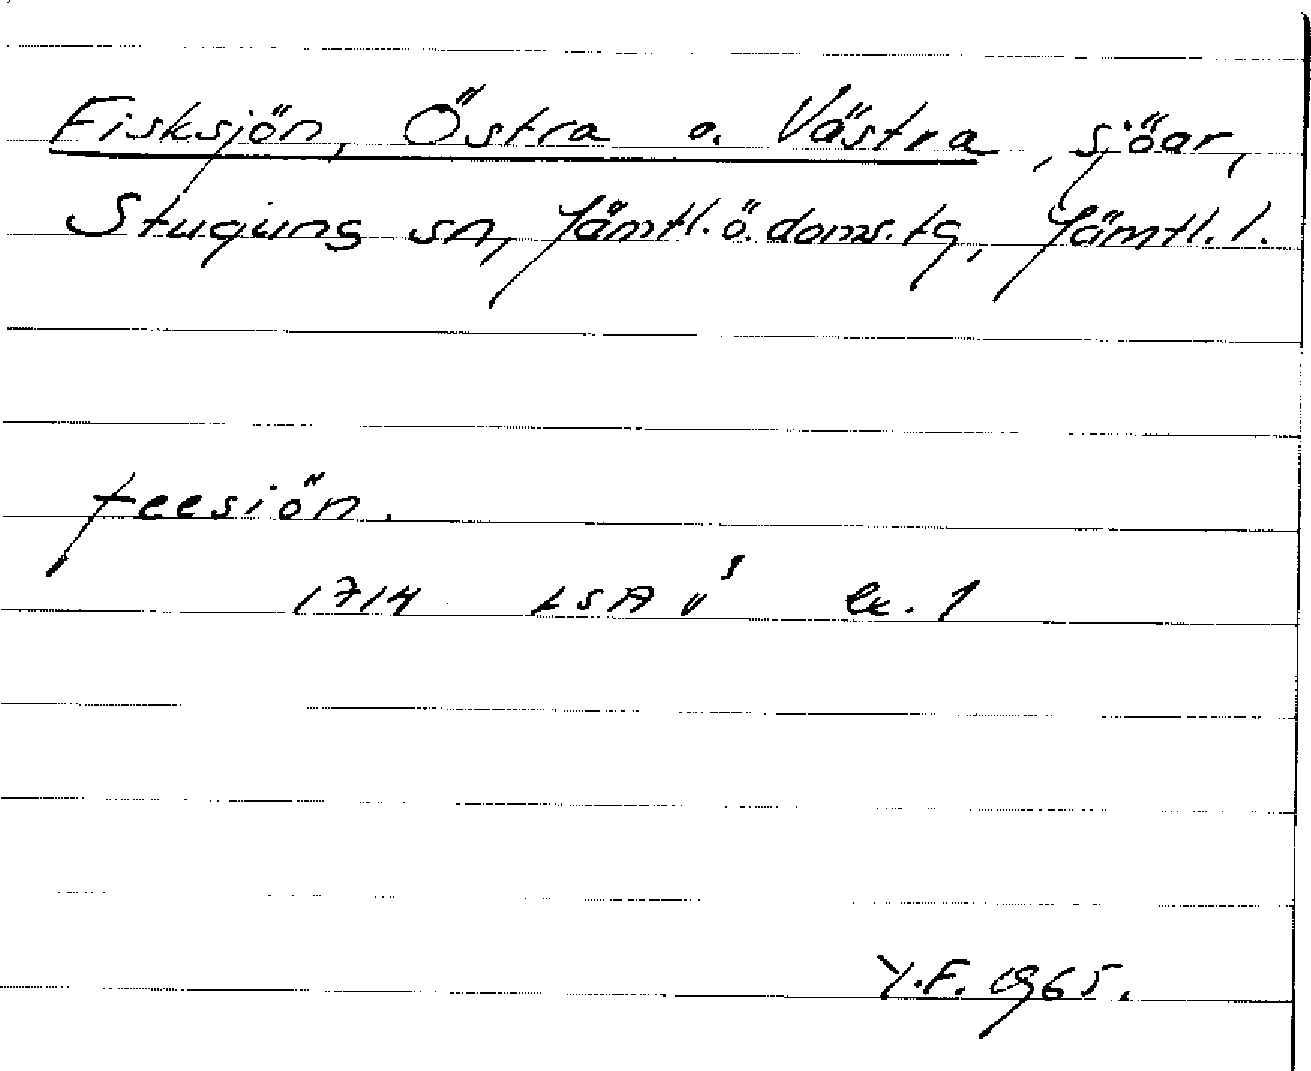 Fisksjön, Östra o. Västra, sjöar,
Stuguns sn, Jämtl.ö.doms.tg, Jämtl.l.
feesiön.
1714 LSA
Y.F. 1965.